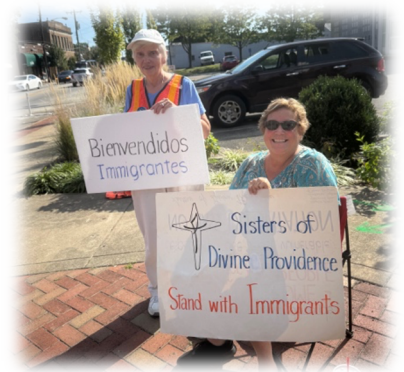 Bienvendidos
Immigrantes
Sisters of
Divine Providence
Stand with Immigrants